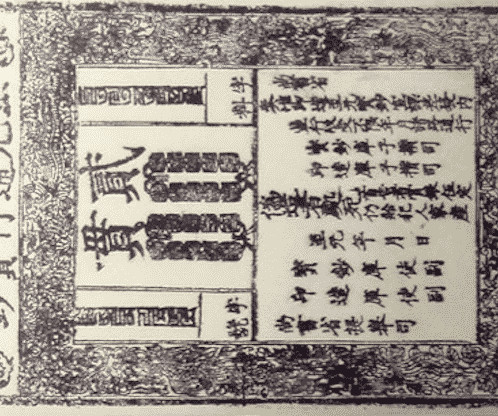 至元通行寶鈔
貳貫
字料
字號
尚書省
奏准印造至元寶鈔宣課差役內
並行收受不限年月諸路通行
寶鈔庫子攢司
印造庫子攢司
僞造者處死
首告者賞銀伍定
仍給犯人家產
至元 年 月 日
寶鈔庫使副
印造庫使副
尚書省提舉司